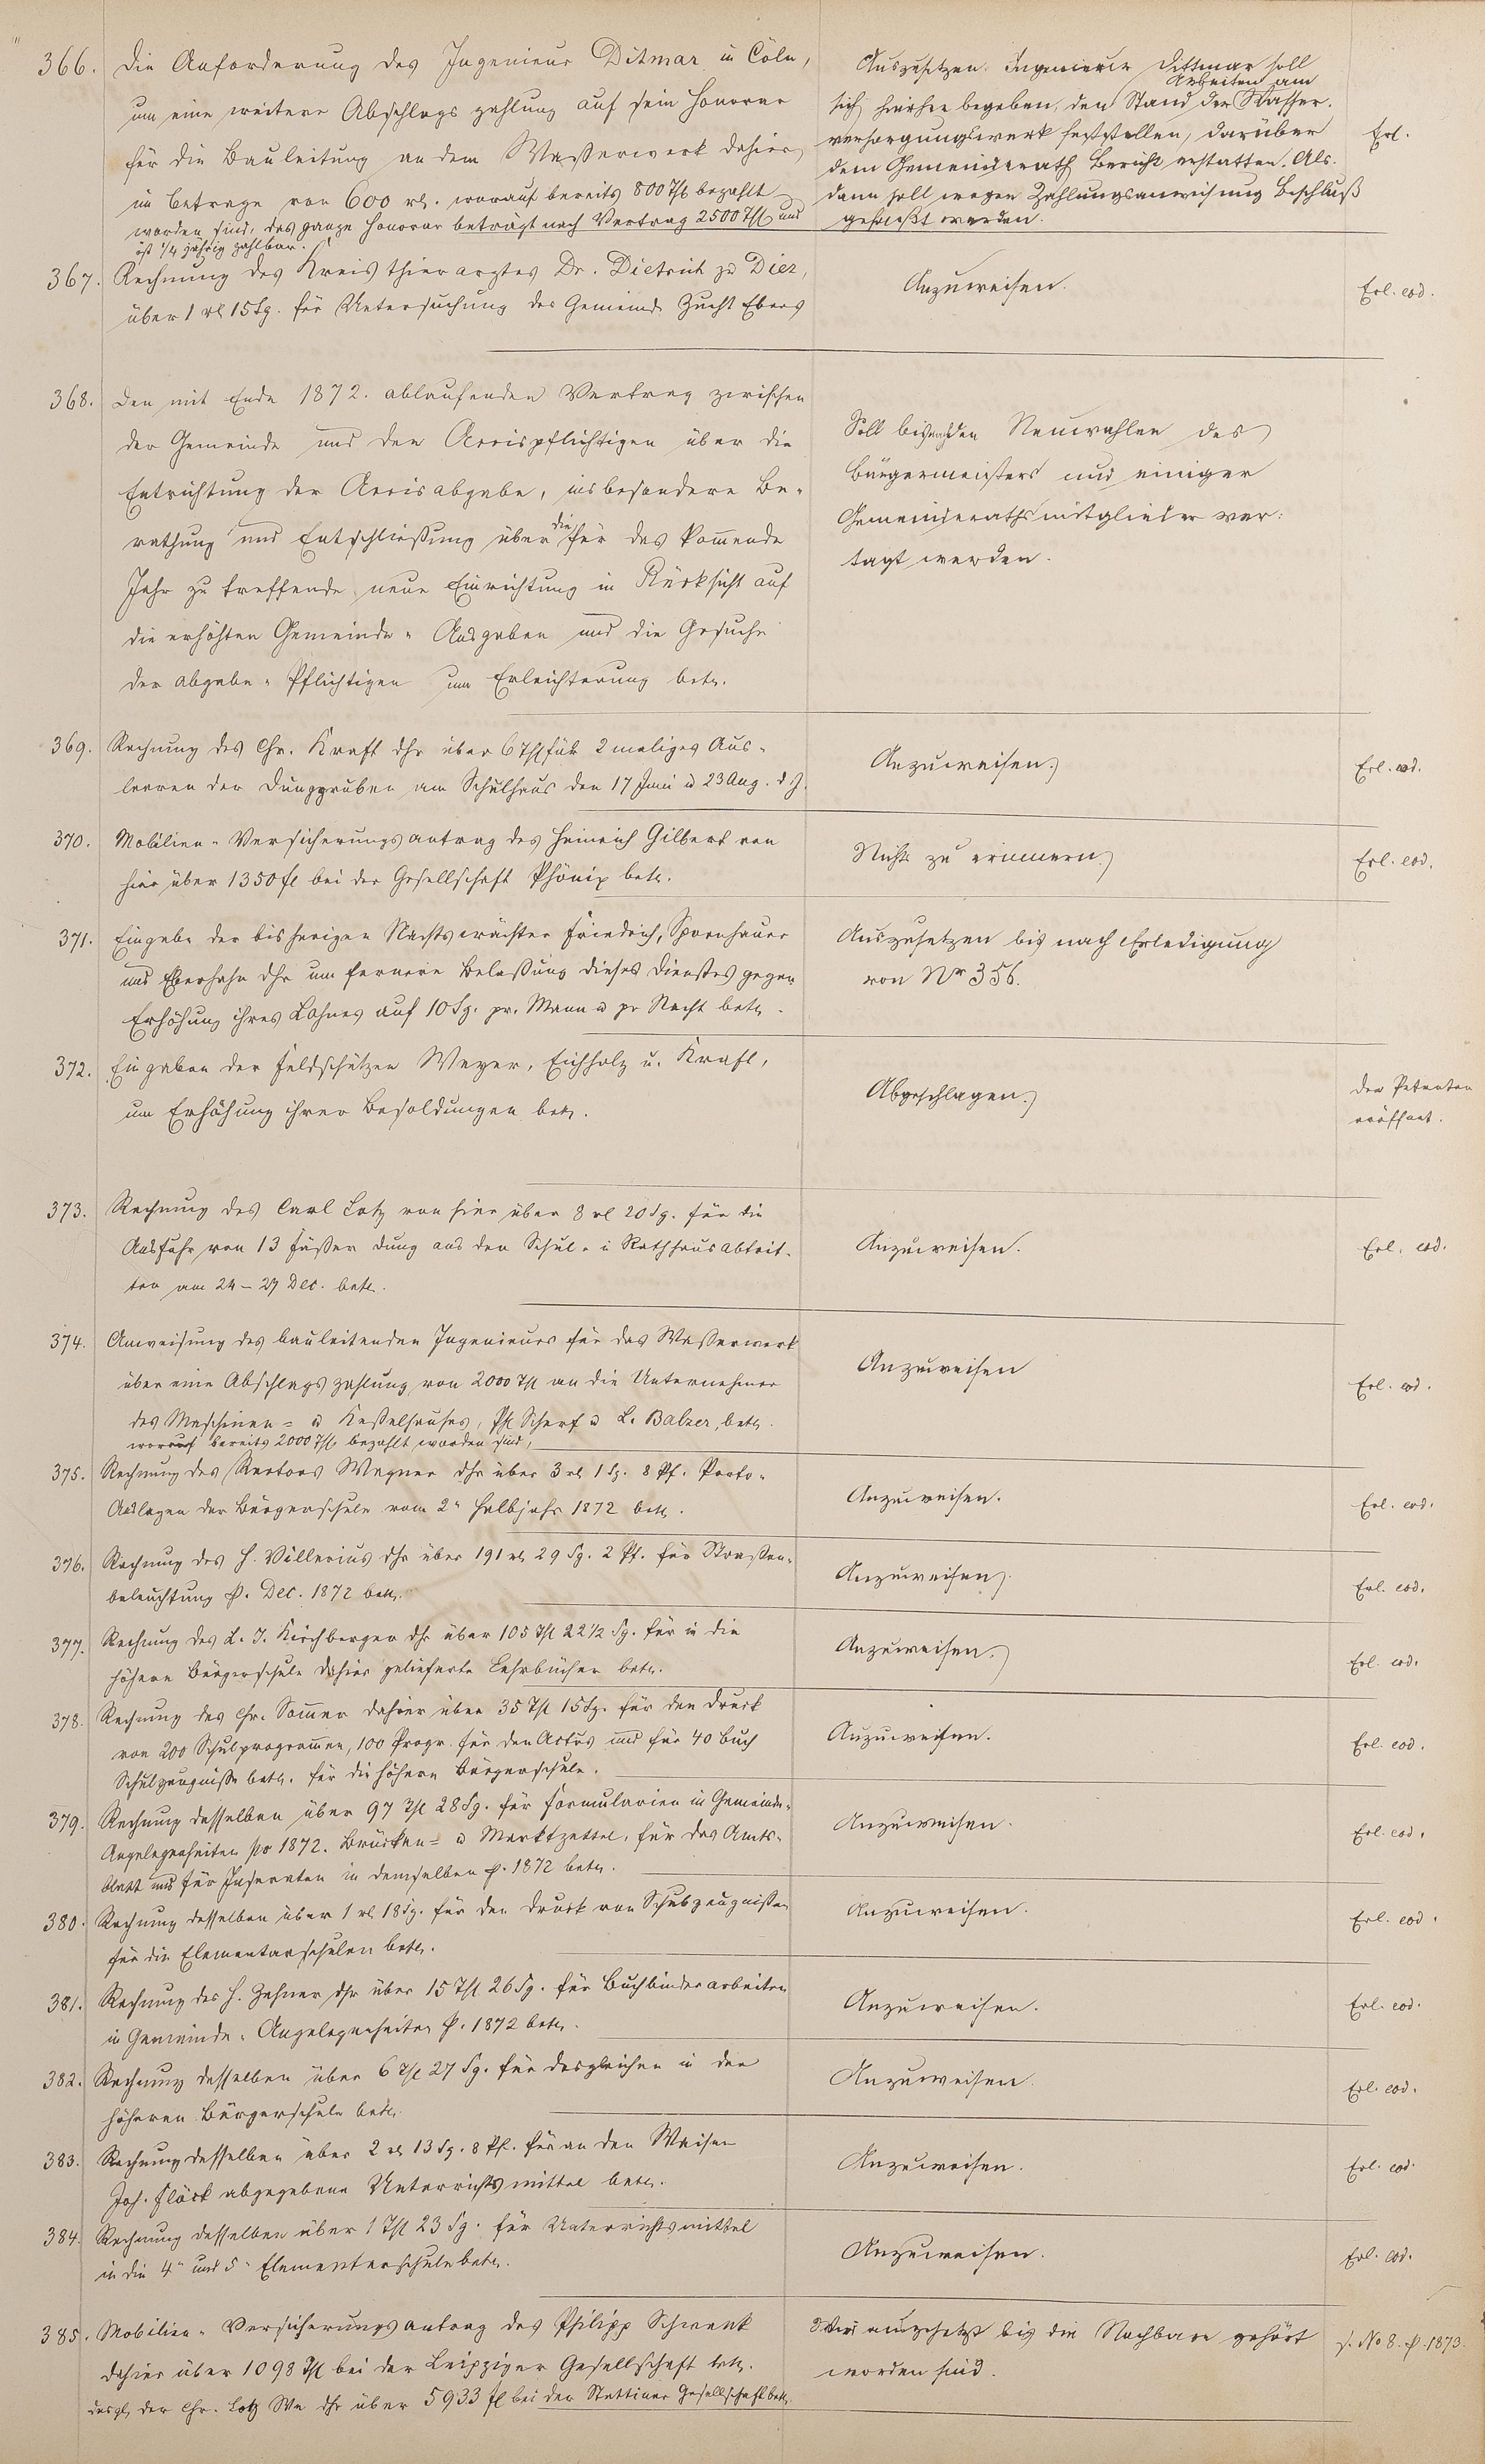 366. Die Anforderung des Ingenieur Ditmar in Cöln,
um eine weitere Abschlags zahlung auf sein Honorar
für die Bauleitung an dem Wasserwerk dahier
im Betrage von 600 rl. worauf bereits 800 Thl bezahlt
worden sind, das ganze Honorar beträgt nach Vertrag 2500 Thl und
ist 1/4 jährig zahlbar.
Auszusetzen. Ingenieur Dittmar soll
Arbeiten am
sich hierher begeben, den Stand der Wasser-
versorgungswerk feststellen, darüber
dem Gemeinderath Bericht erstatten. Als-
dann soll wegen Zahlungsanweisung Beschluß
gefaßt werden.
Erl.
367. Rechnung des Kreisthierarztes Dr. Dietrich zu Diez,
über 1 rl 15 Sg. für Untersuchung des Gemeinde Zucht Ebers
Anzuweisen.
Erl. eod.
368. Den mit Ende 1872. ablaufenden Vertrag zwischen
der Gemeinde und den Accispflichtigen über die
Entrichtung der Accisabgabe, insbesondere Be-
rathung und Entschließung über die für das kommende
Jahr zu treffende neue Einrichtung in Rücksicht auf
die erhöhten Gemeinde-Ausgaben und die Gesuche
der Abgabe-Pflichtigen um Erleichterung betr.
Soll bis nach den Neuwahlen des
Bürgermeisters und einiger
Gemeinderathsmitglieder ver-
tagt werden.
369. Rechnung des Chr. Kraft dhr über 6 Thl für 2 maliges Aus-
leeren der Dunggruben am Schulhaus den 17 Juni u 23 Aug. d. J.
Anzuweisen.
Erl. eod.
370. Mobilien-Versicherungsantrag des Heinrich Gilbert von
hier über 1350 fl bei der Gesellschaft Phönix betr.
Nichts zu erinnern.
Erl. eod.
371. Eingabe der bisherigen Nachtswächter Friedrich, Spornhauer
und Eberhahn dhr um fernere Belaßung dieses Dienstes gegen
Erhöhung ihres Lohnes auf 10 Sg. pr. Mann u pr Nacht betr.
Auszusetzen bis nach Erledigung
von Nr 356.
372. Eingaben der Feldschützen Weyer, Eichholz u. Kraft,
um Erhöhung ihrer Besoldungen betr.
Abgeschlagen.
Den Petenten
eröffnet.
373. Rechnung des Carl Lotz von hier über 8 rl 20 Sg. für die
Ausfuhr von 13 Fässer Dung aus den Schul- u Rathhausabtrit-
ten am 24-27 Dec. betr.
Anzuweisen.
Erl. eod.
374. Anweisung des bauleitenden Ingenieurs für das Wasserwerk
über eine Abschlagszahlung von 2000 Thl an die Unternehmer
des Maschinen- u Kesselhauses, Ph Scharf u L. Balzer, betr.
worauf bereits 2000 Thl. bezahlt worden sind,
Anzuweisen
Erl. eod.
375. Rechnung des Rectors Wagner dhr über 3 rl 1 Sg. 8 Pf. Porto-
Auslagen der Bürgerschule vom 2n Halbjahr 1872 betr.
Anzuweisen.
Erl. eod.
376. Rechnung des H. Villerius dhr über 191 rl 29 Sg. 2 Pf. für Straßen-
beleuchtung p. Dec. 1872 betr.
Anzuweisen.
Erl. eod.
377. Rechnung des L. J. Kirchberger dhr über 105 Thl 22 1/2 Sg. für in die
höhere Bürgerschule dahier gelieferte Lehrbücher betr.
Anzuweisen.
Erl. eod.
378. Rechnung des Chr. Sommer dahier über 35 Thl 15 Sg. für den Druck
von 200 Schulprogrammen, 100 Progr. für den Actus und für 40 Buch
Schulzeugnisse betr. für die höhere Bürgerschule.
Anzuweisen.
Erl. eod.
379. Rechnung desselben über 97 Thl 28 Sg. für Formularien in Gemeinde-
Angelegenheiten pr 1872. Brücken- u Marktzettel, für das Amts-
blatt und für Inseraten in demselben p. 1872 betr.
Anzuweisen.
Erl. eod.
380. Rechnung desselben über 1 rl 18 Sg. für den Druck von Schulzeugnissen
für die Elementarschulen betr.
Anzuweisen.
Erl. eod.
381. Rechnung des H. Zahner dhr über 15 Thl 26 Sg. für Buchbinderarbeiten
in Gemeinde-Angelegenheiten p. 1872 betr.
Anzuweisen.
Erl. eod.
382. Rechnung desselben über 6 Thl 27 Sg. für desgleichen in der
höheren Bürgerschule betr.
Anzuweisen.
Erl. eod.
383. Rechnung desselben über 2 rl 13 Sg. 8 Pf. für an den Waisen
Joh. Flöck abgegebene Unterrichtsmittel betr.
Anzuweisen.
Erl. eod.
384. Rechnung desselben über 1 Thl 23 Sg. für Unterrichtsmittel
in die 4n und 5n Elementarschule betr.
Anzuweisen.
Erl. eod.
385. Mobilien-Versicherungsantrag des Philipp Schwenk
dahier über 1098 Thl bei der Leipziger Gesellschaft betr.
desgl. der Chr. Lotz We dhr über 5933 fl bei der Stettiner Gesellschaft betr.
Wird ausgesetzt bis die Nachbarn gehört
worden sind.
s. No 8. p. 1873.